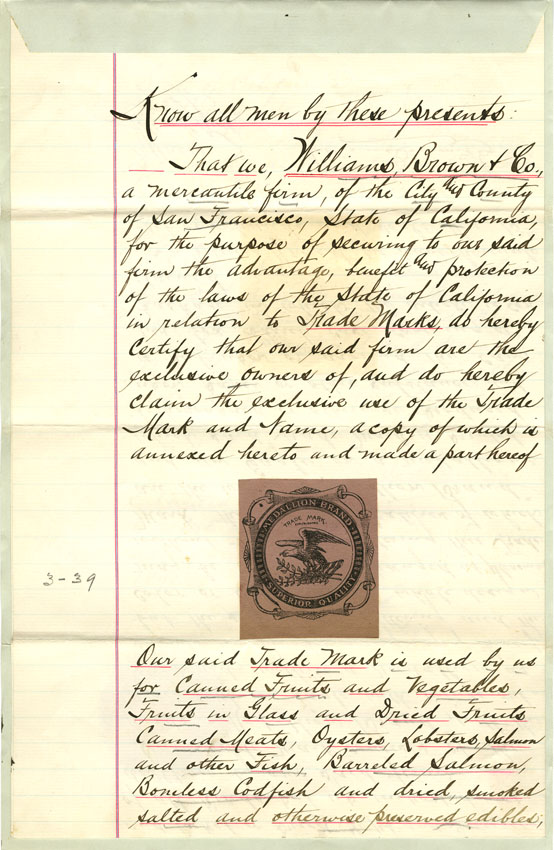 Know all men by these presents:
That we, Williams, Brown & Co.,
a mercantile firm, of the City and County
of San Francisco, State of California,
for the purpose of securing to our said
firm the advantage, benefit and protection
of the laws of the State of California
in relation to Trade Marks, do hereby
certify that our said firm are the
exclusive owners of, and do hereby
claim the exclusive use of the Trade
Mark and Name, a copy of which is
annexed hereto and made a part hereof
MEDALLION BRAND
TRADE MARK
SUPERIOR QUALITY
3-39
Our said Trade Mark is used by us
for Canned Fruits and Vegetables,
Fruits in Glass and Dried Fruits
Canned Meats, Oysters, Lobsters, Salmon
and other Fish, Barreled Salmon,
Boneless Codfish and dried, smoked
salted and otherwise preserved edibles;